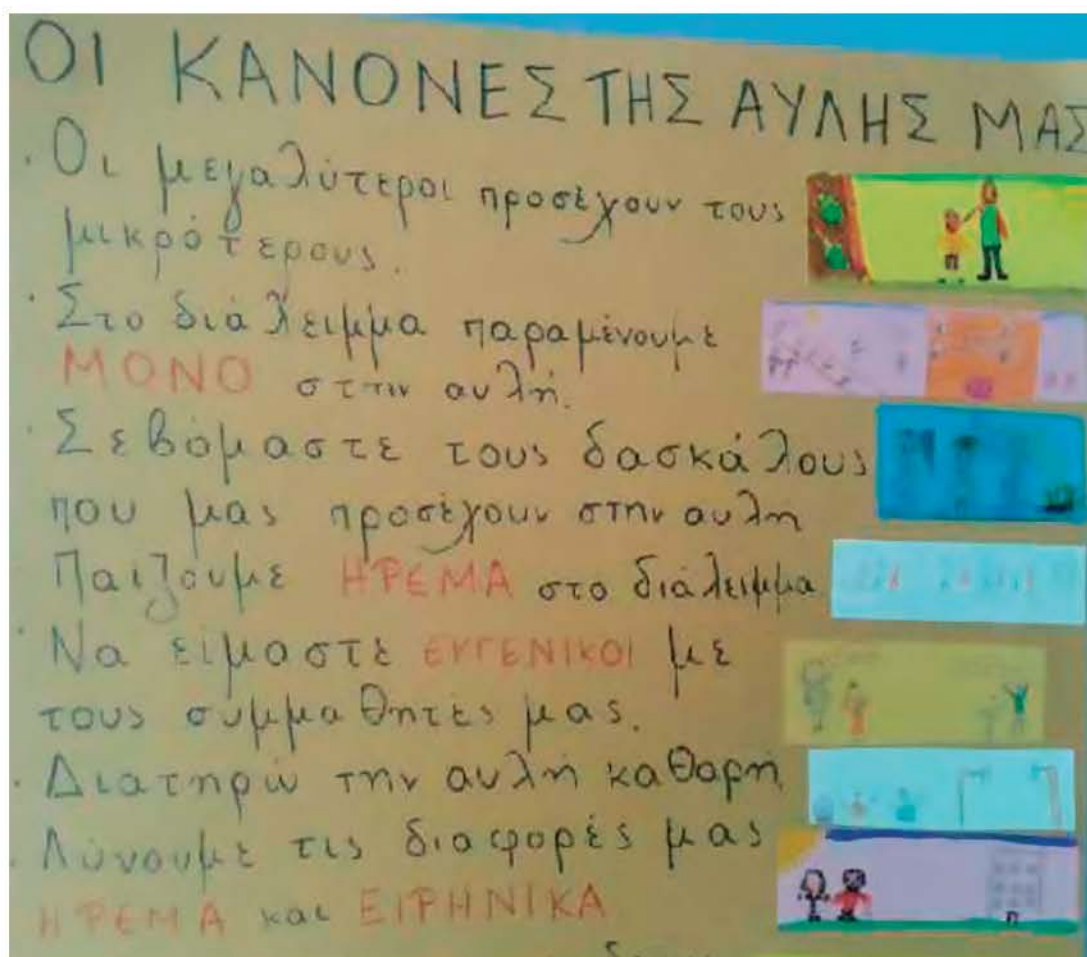 ΟΙ ΚΑΝΟΝΕΣ ΤΗΣ ΑΥΛΗΣ ΜΑΣ
· Οι μεγαλύτεροι προσέχουν τους
μικρότερους.
· Στο διάλειμμα παραμένουμε
ΜΟΝΟ στην αυλή.
· Σεβόμαστε τους δασκάλους
που μας προσέχουν στην αυλη
Παίζουμε ΗΡΕΜΑ στο διάλειμμα
· Να είμαστε ΕΥΓΕΝΙΚΟΙ με
τους συμμαθητές μας.
· Διατηρώ την αυλη καθαρη
· Λύνουμε τις διαφορές μας
ΗΡΕΜΑ και ΕΙΡΗΝΙΚΑ